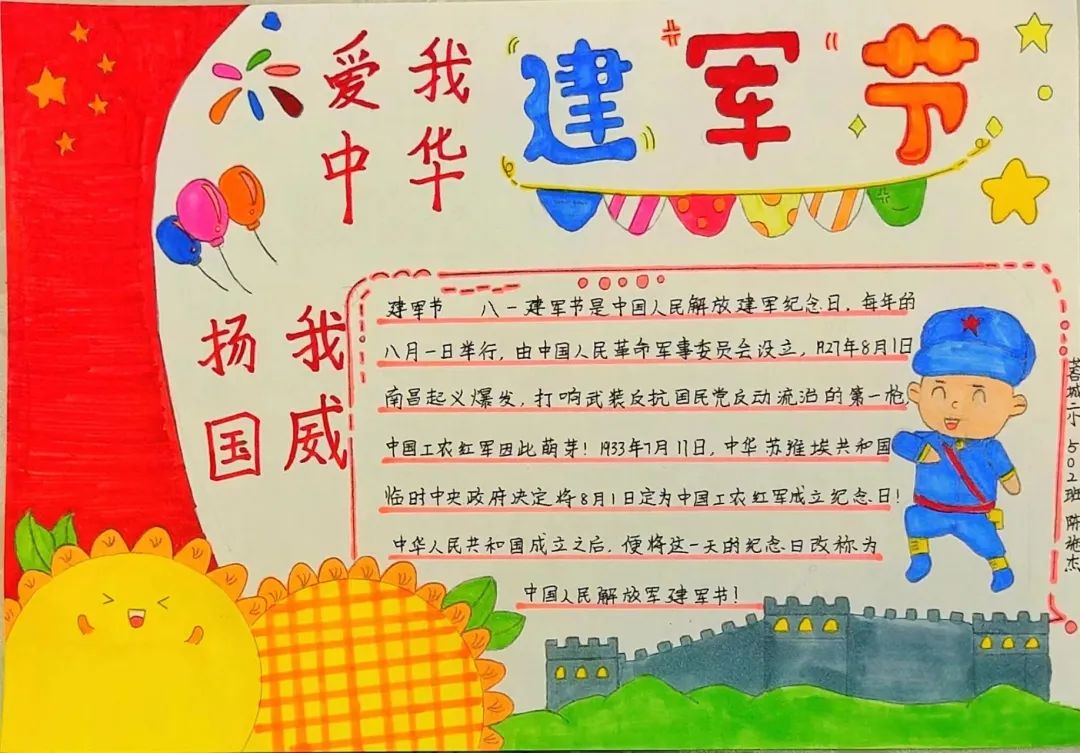 建军节
爱我
中华
扬我
国威
建军节 八一建军节是中国人民解放建军纪念日，每年的
八月一日举行，由中国人民革命军事委员会设立，1927年8月1日
南昌起义爆发，打响武装反抗国民党反动流治的第一枪，
中国工农红军因此萌芽！1933年7月11日，中华苏维埃共和国
临时中央政府决定将8月1日定为中国工农红军成立纪念日！
中华人民共和国成立之后，便将这一天的纪念日改称为
中国人民解放军建军节！
蓉城二小 502班 陈